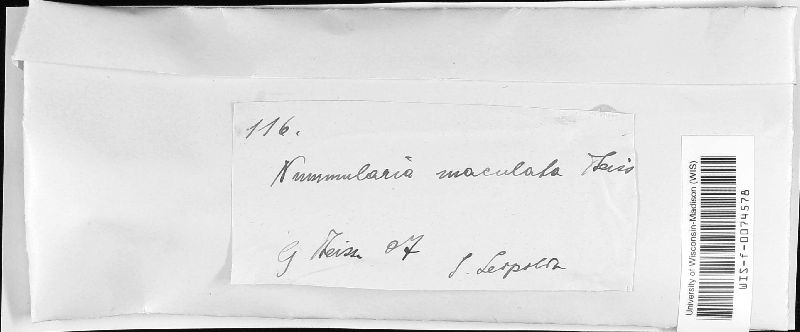 116.
Nummularia maculata Theiss
G Theiss 07
S. Leopoldo
University of Wisconsin-Madison (WIS)
WIS-f-0074578